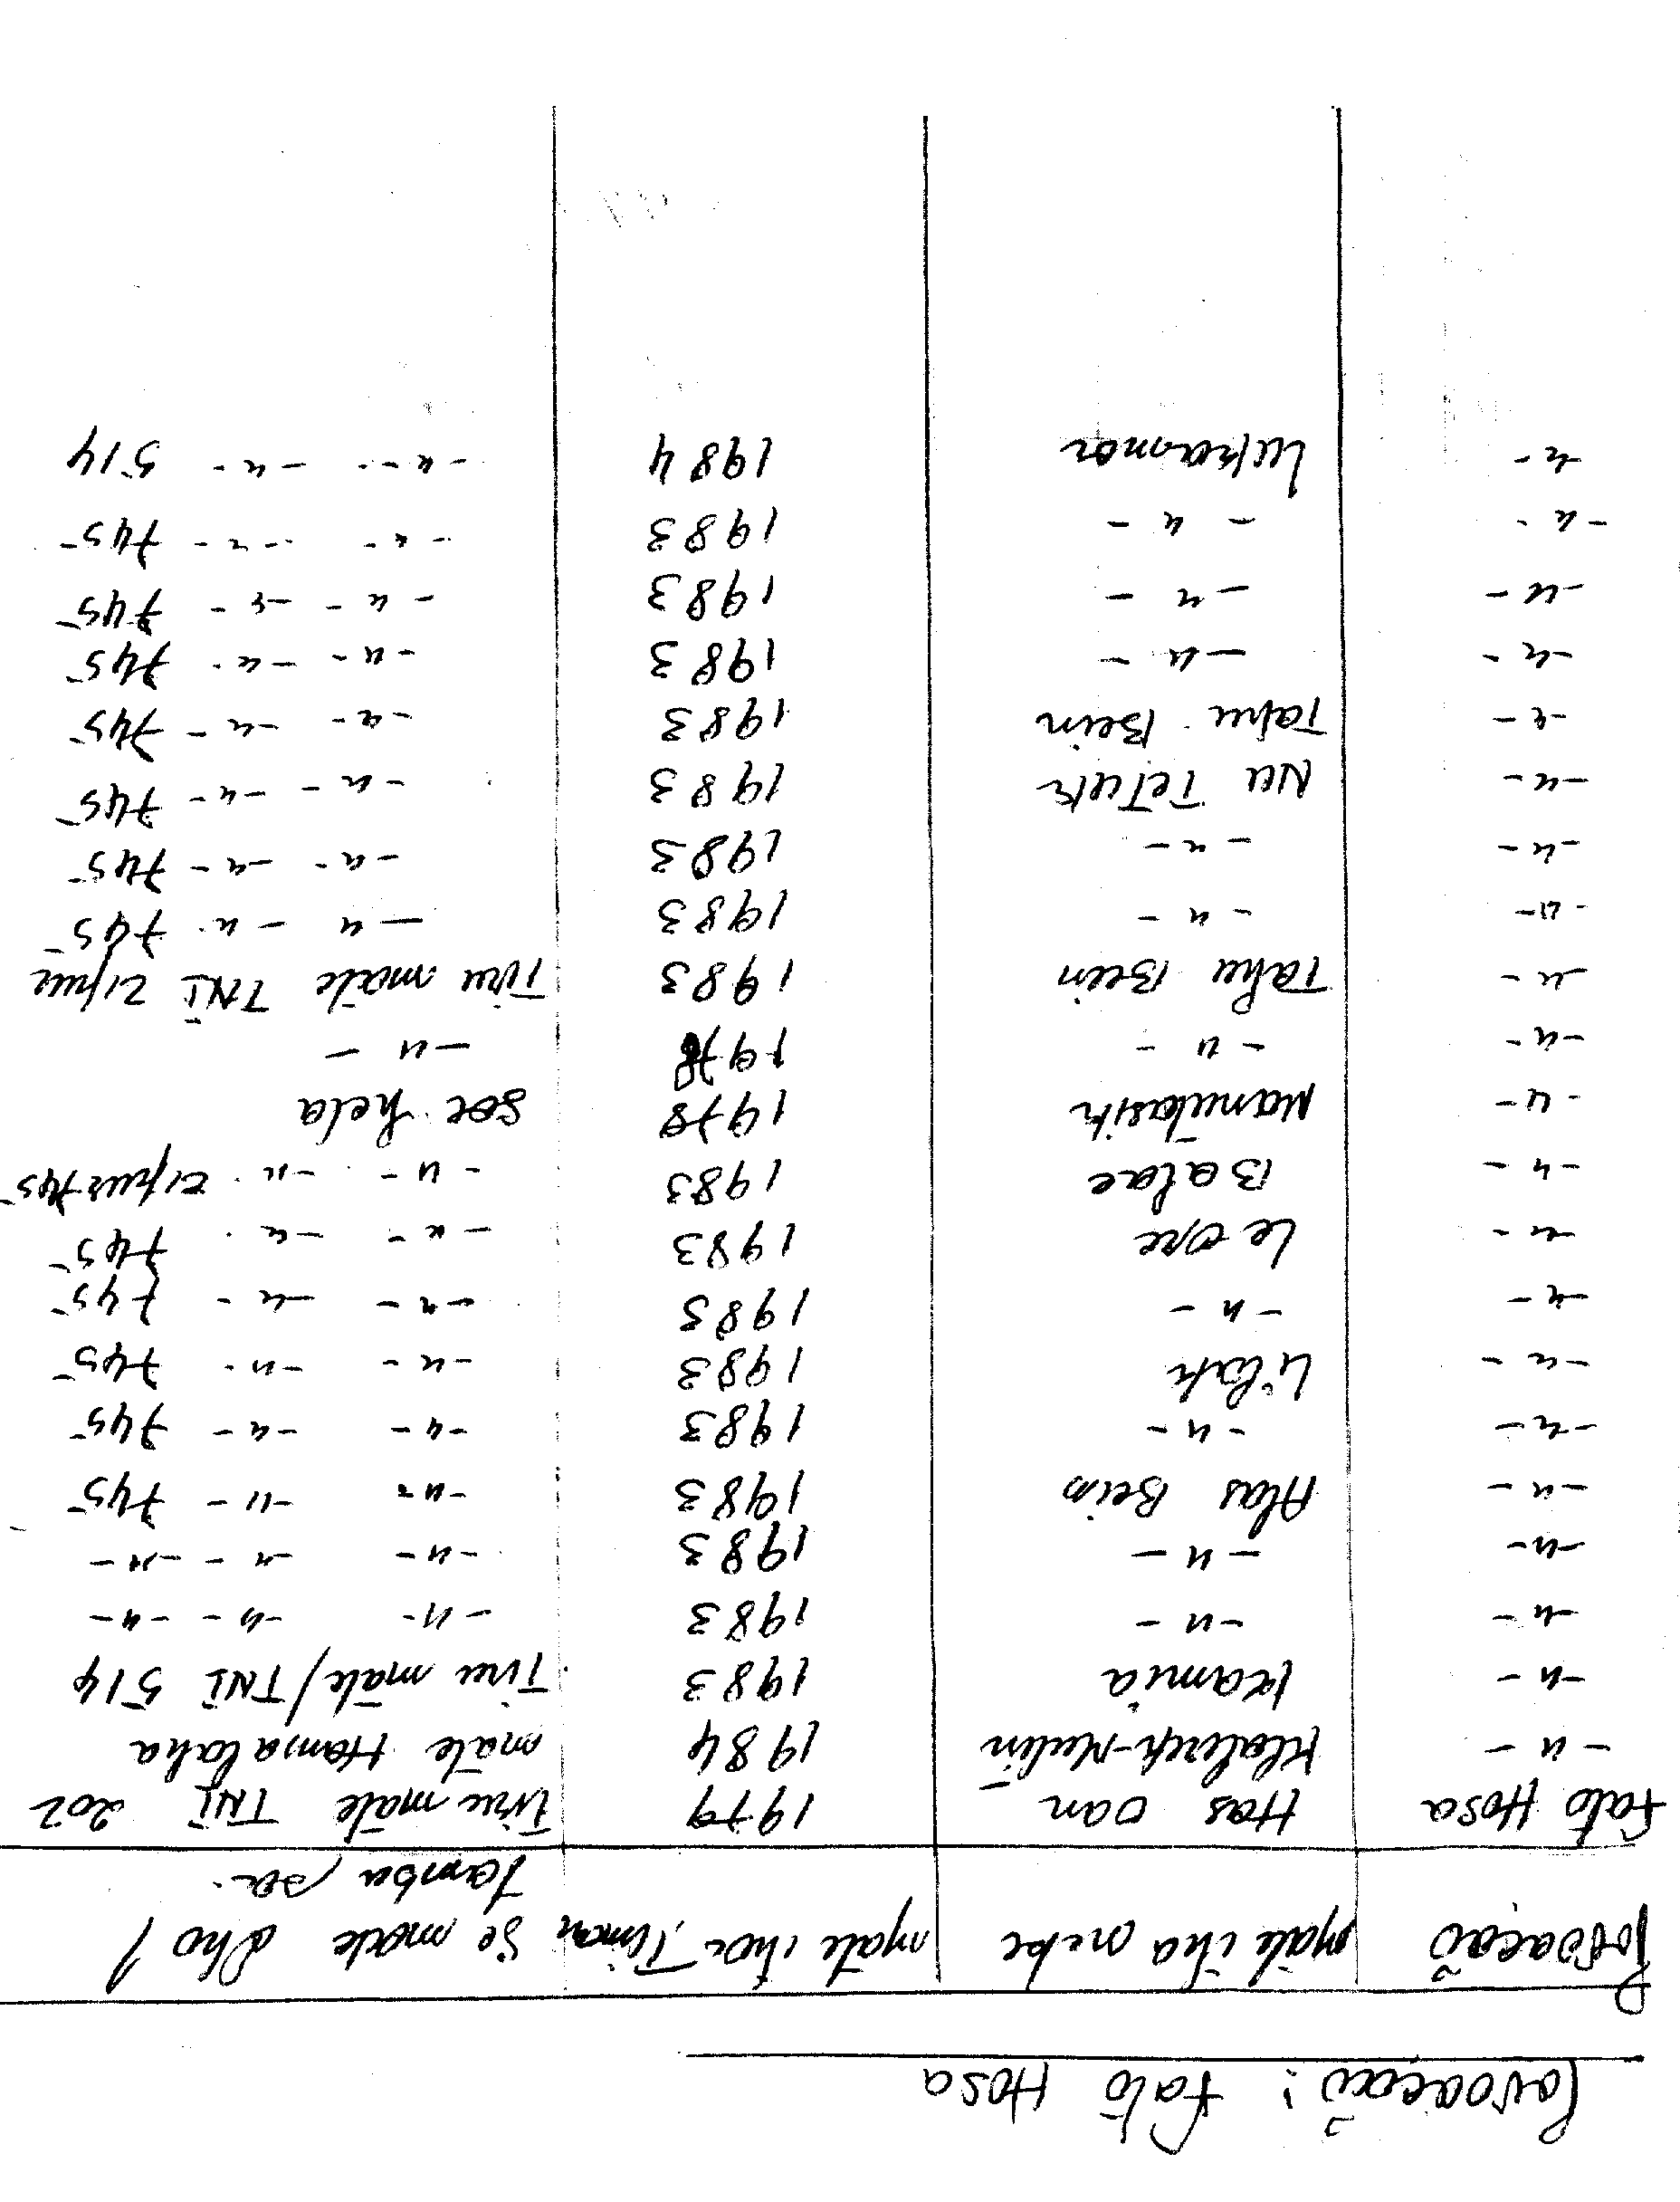 Povoacaõ : Fato Hosa
Povoacaõ mate iha nebe mate iha Tinan Se mak oho /
Tamba sa.
Fato Hosa Has oan 1979 Tiru mate TNI 202
- u - Klalerek-Mutin 1984 mate Hamalaha
- u - Kamia 1983 Tiru mate/TNI 514
- u - - u - 1983 - u - - u - - u -
- u - - u - 1983 - u - - u - - u -
- u - Alas Bein 1983 - u - - u - 745
- u - - u - 1983 - u - - u - 745
- u - Lilok 1983 - u - - u - 745
- u - - u - 1983 - u - - u - 745
- u - Le ore 1983 - u - - u - 745
- u - Balae 1983 - u - - u - Zipur 745
- u - Manulasik 1978 see hela
- u - - u - 1978 - u -
- u - Tahu Bein 1983 Tiru mate TNI Zipur
- u - - u - 1983 - u - - u - 745
- u - - u - 1983 - u - - u - 745
- u - Nu Tetuk 1983 - u - - u - 745
- u - Tahu Bein 1983 - u - - u - 745
- u - - u - 1983 - u - - u - 745
- u - - u - 1983 - u - - u - 745
- u - - u - 1983 - u - - u - 745
- u - Lukanor 1984 - u - - u - 514